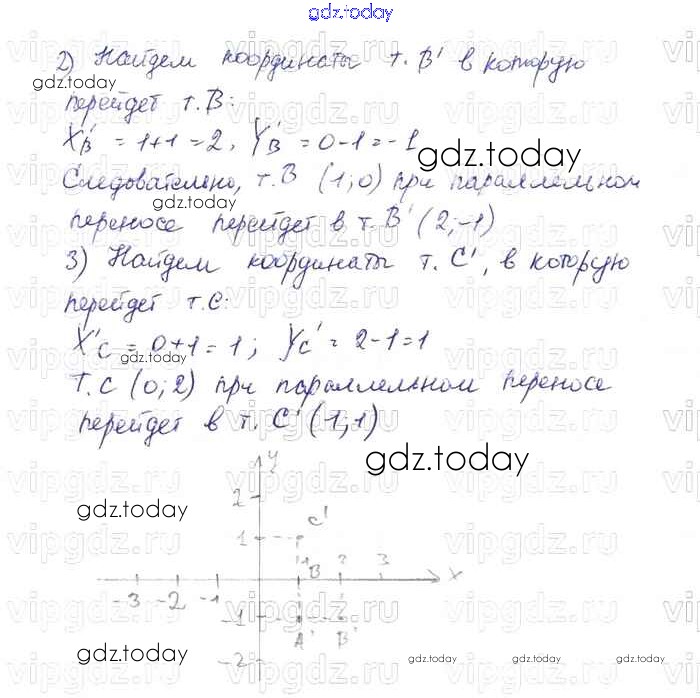 gdz.today
2) Найдем координаты т. B' в которую
gdz.today
перейдет т. B:
X'B = 1+1 = 2, Y'B = 0-1 = -1
gdz.today
Следовательно, т. B (1; 0) при параллельном
gdz.today
переносе перейдет в т. B' (2; -1)
3) Найдем координаты т. C', в которую
перейдет т. C:
X'C = 0+1 = 1; YC' = 2-1 = 1
gdz.today
т. C (0; 2) при параллельном переносе
перейдет в т. C' (1; 1)
gdz.today
y
2
gdz.today
C'
1
1 B 2 3 x
-3 -2 -1
-1
A' B'
gdz.today
-2
gdz.today gdz.today gdz.today
vipgdz.ru